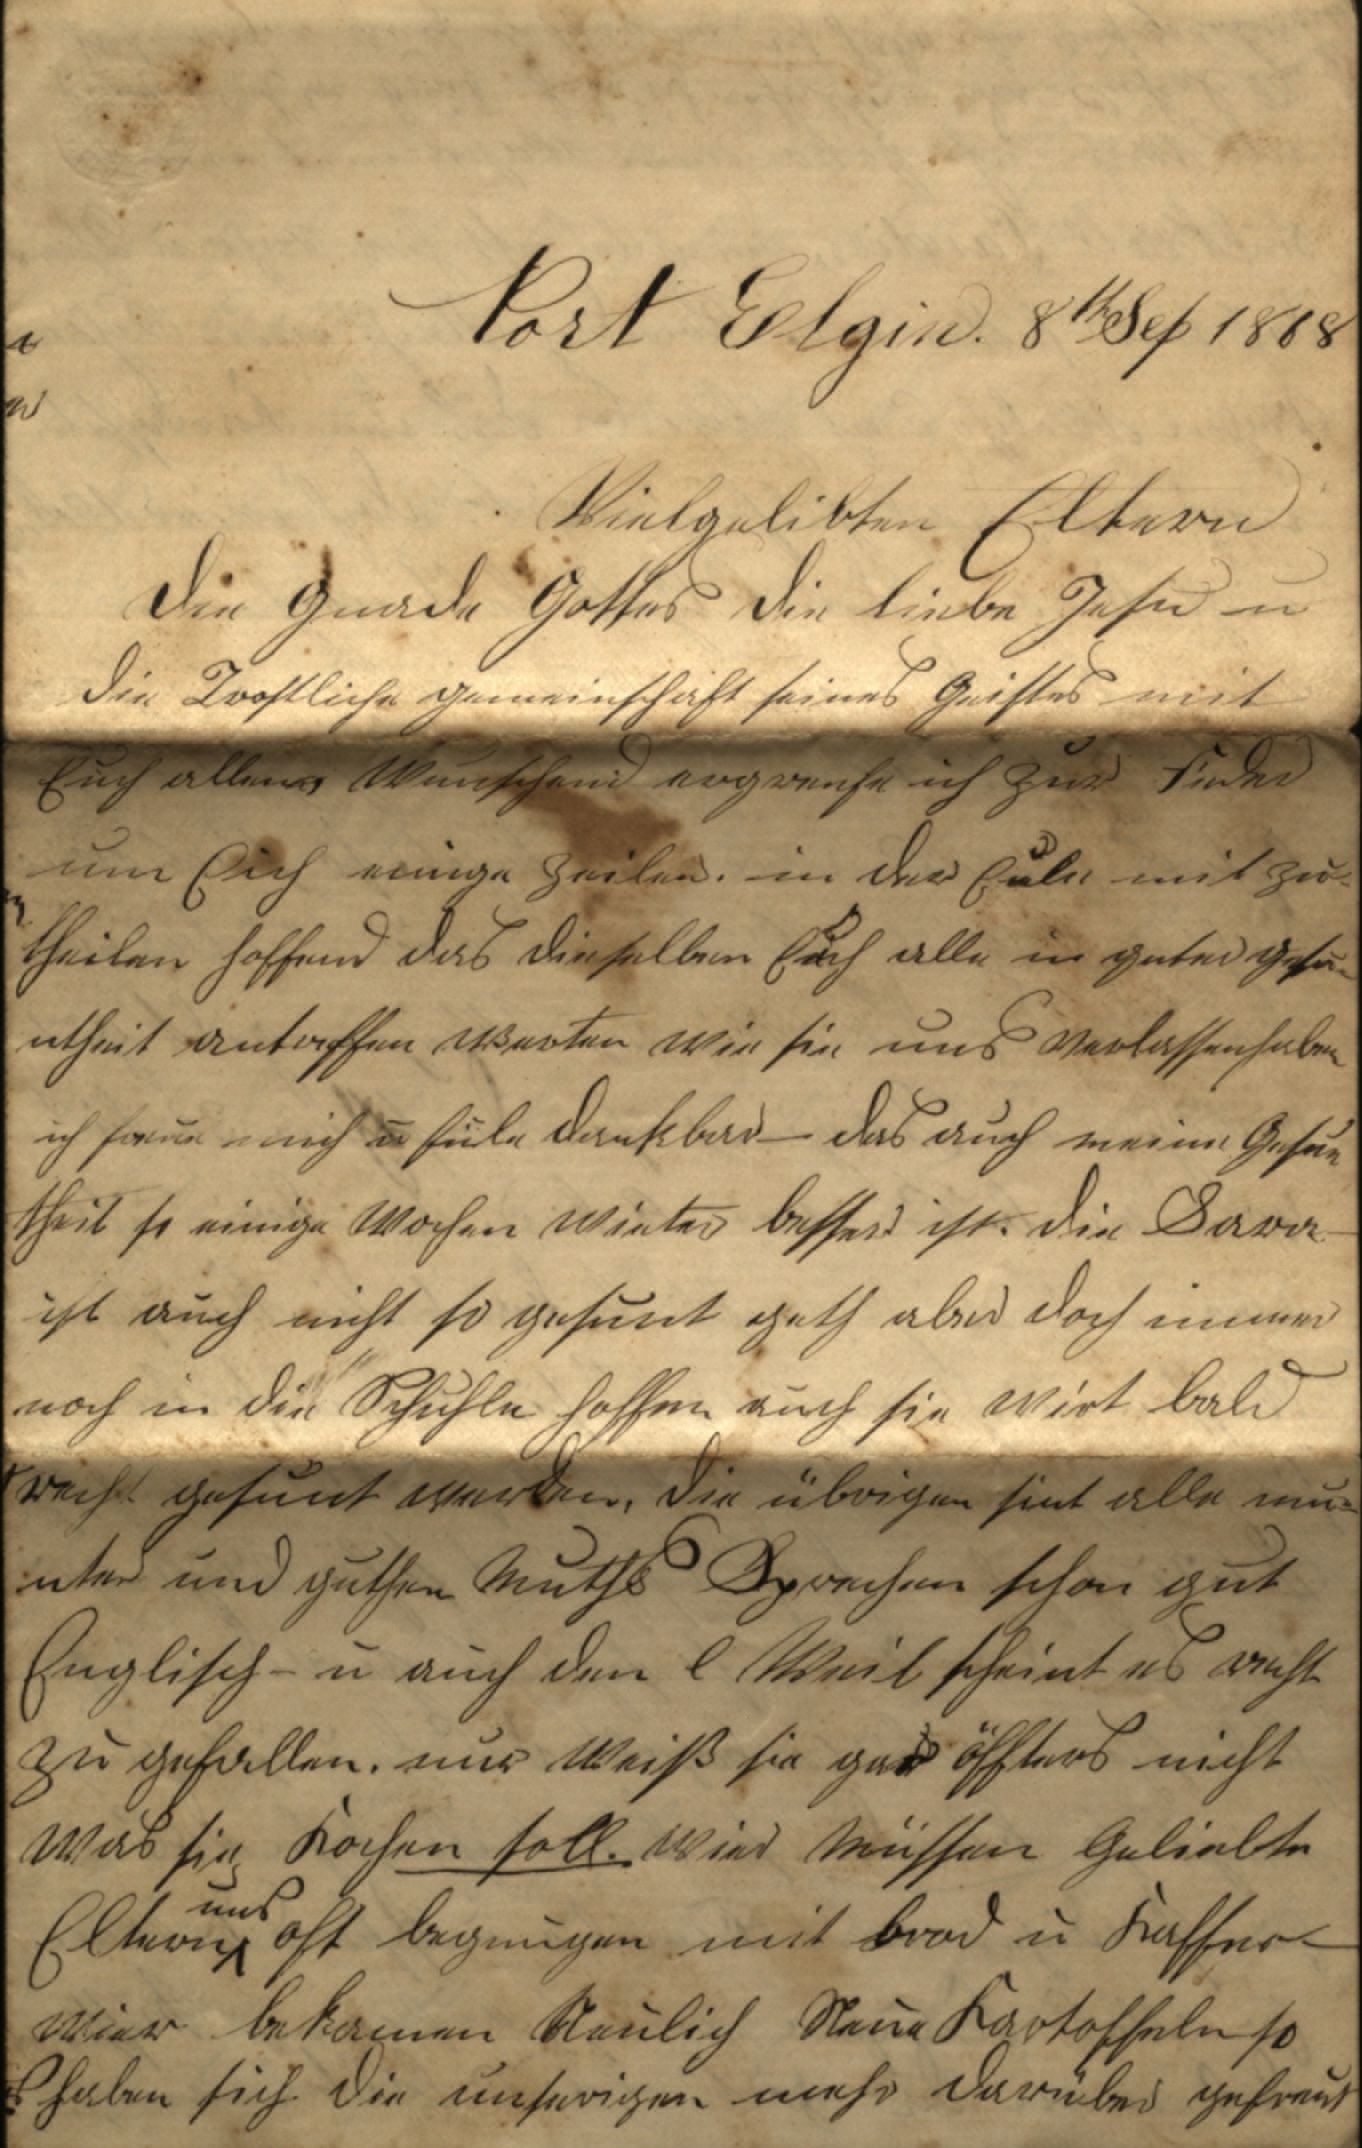 Port Elgin. 8th Sep 1868
Vielgelibten Eltern
Die Gnade Gottes die liebe Jesu u
die Trostliche gemeinschaft seines Geistes mit
Euch allen Wunschend ergreufe ich zur Feder
um Eich einige Zeilen. in der Eule mit zu-
theilen hoffend das dieselben Euch alle in guter gesu-
ntheit antreffen werten wie sie uns verlassen haben
ich freue mich u füle dankbar das auch meine Gesun
theit so einige Wochen wieter besser ist. die Sara
ist auch nicht so gesunt geth aber doch immer
noch in die Schuhle hoffen auch sie wirt bald
recht gesunt werden, die übrigen sint alle mu-
nter und guthen Muths Sprechen schon gut
Englisch - u auch den l Weib scheint es recht
zu gefallen. nur Weiß sie gar öffters nicht
Was sie Kochen soll. Wier Müssen Geliebte
Eltern uns oft begnugen mit brod u Kaffee
wier bekamen Neulich Neue Kartoffeln so
haben sich die unserigen mehr darüber gefreut